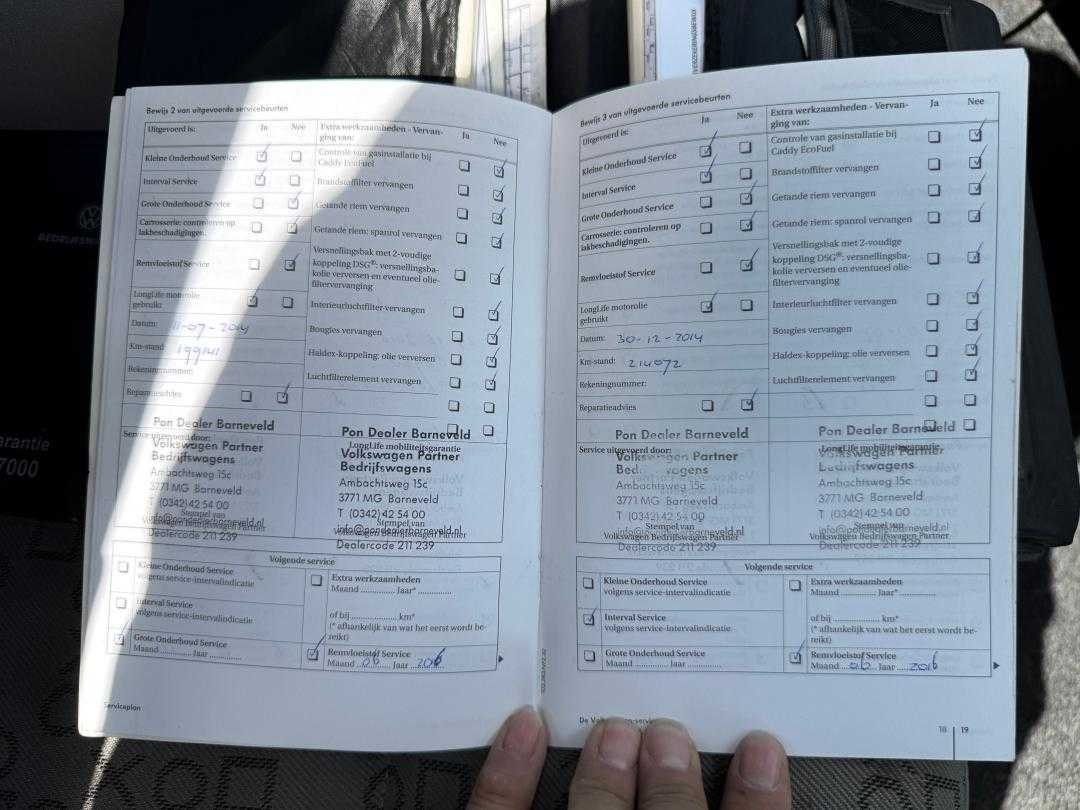 VERZEKERINGSBEWIJS
BEDRIJFSW
arantie
7000
Bewijs 2 van uitgevoerde servicebeurten
Uitgevoerd is: Ja Nee
Kleine Onderhoud Service
Interval Service
Grote Onderhoud Service
Carrosserie: controleren op
lakbeschadigingen.
Remvloeistof Service
LongLife motorolie
gebruikt
Datum: 11-07-2014
Km-stand: 199141
Rekeningnummer:
Reparatieadvies
Extra werkzaamheden - Vervan-
ging van: Ja Nee
Controle van gasinstallatie bij
Caddy EcoFuel
Brandstoffilter vervangen
Getande riem vervangen
Getande riem: spanrol vervangen
Versnellingsbak met 2-voudige
koppeling DSG®: versnellingsba-
kolie verversen en eventueel olie-
filtervervanging
Interieurluchtfilter vervangen
Bougies vervangen
Haldex-koppeling: olie verversen
Luchtfilterelement vervangen
Service uitgevoerd door:
Pon Dealer Barneveld
Volkswagen Partner
Bedrijfswagens
Ambachtsweg 15c
3771 MG Barneveld
T (0342) 42 54 00
info@pondealerbarneveld.nl
Stempel van
Volkswagen Bedrijfswagen Partner
Dealercode 211 239
LongLife mobiliteitsgarantie
Pon Dealer Barneveld
Volkswagen Partner
Bedrijfswagens
Ambachtsweg 15c
3771 MG Barneveld
T (0342) 42 54 00
info@pondealerbarneveld.nl
Stempel van
Volkswagen Bedrijfswagen Partner
Dealercode 211 239
Volgende service
Kleine Onderhoud Service
volgens service-intervalindicatie
Interval Service
volgens service-intervalindicatie
Grote Onderhoud Service
Maand ........... Jaar ............
Extra werkzaamheden
Maand ............ Jaar* ............
of bij ................ km*
(* afhankelijk van wat het eerst wordt be-
reikt)
Remvloeistof Service
Maand 06 Jaar 2016
Serviceplan
Bewijs 3 van uitgevoerde servicebeurten
Uitgevoerd is: Ja Nee
Kleine Onderhoud Service
Interval Service
Grote Onderhoud Service
Carrosserie: controleren op
lakbeschadigingen.
Remvloeistof Service
LongLife motorolie
gebruikt
Datum: 30-12-2014
Km-stand: 214072
Rekeningnummer:
Reparatieadvies
Extra werkzaamheden - Vervan-
ging van: Ja Nee
Controle van gasinstallatie bij
Caddy EcoFuel
Brandstoffilter vervangen
Getande riem vervangen
Getande riem: spanrol vervangen
Versnellingsbak met 2-voudige
koppeling DSG®: versnellingsba-
kolie verversen en eventueel olie-
filtervervanging
Interieurluchtfilter vervangen
Bougies vervangen
Haldex-koppeling: olie verversen
Luchtfilterelement vervangen
Service uitgevoerd door:
Pon Dealer Barneveld
Volkswagen Partner
Bedrijfswagens
Ambachtsweg 15c
3771 MG Barneveld
T (0342) 42 54 00
info@pondealerbarneveld.nl
Stempel van
Volkswagen Bedrijfswagen Partner
Dealercode 211 239
LongLife mobiliteitsgarantie
Pon Dealer Barneveld
Volkswagen Partner
Bedrijfswagens
Ambachtsweg 15c
3771 MG Barneveld
T (0342) 42 54 00
info@pondealerbarneveld.nl
Stempel van
Volkswagen Bedrijfswagen Partner
Dealercode 211 239
Volgende service
Kleine Onderhoud Service
volgens service-intervalindicatie
Interval Service
volgens service-intervalindicatie
Grote Onderhoud Service
Maand ........... Jaar ............
Extra werkzaamheden
Maand ............ Jaar* ............
of bij ................ km*
(* afhankelijk van wat het eerst wordt be-
reikt)
Remvloeistof Service
Maand 06 Jaar 2016
18 | 19